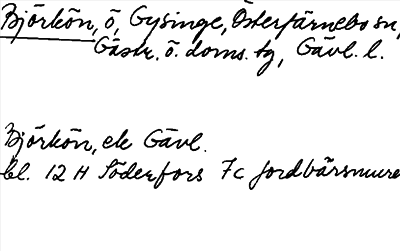 Björkön, ö, Gysinge, Österfärnebo sn,
Gästr. ö. doms. tg, Gävl. l.
Björkön, ek Gävl.
bl. 12 H Söderfors 7c Jordbärsmuren